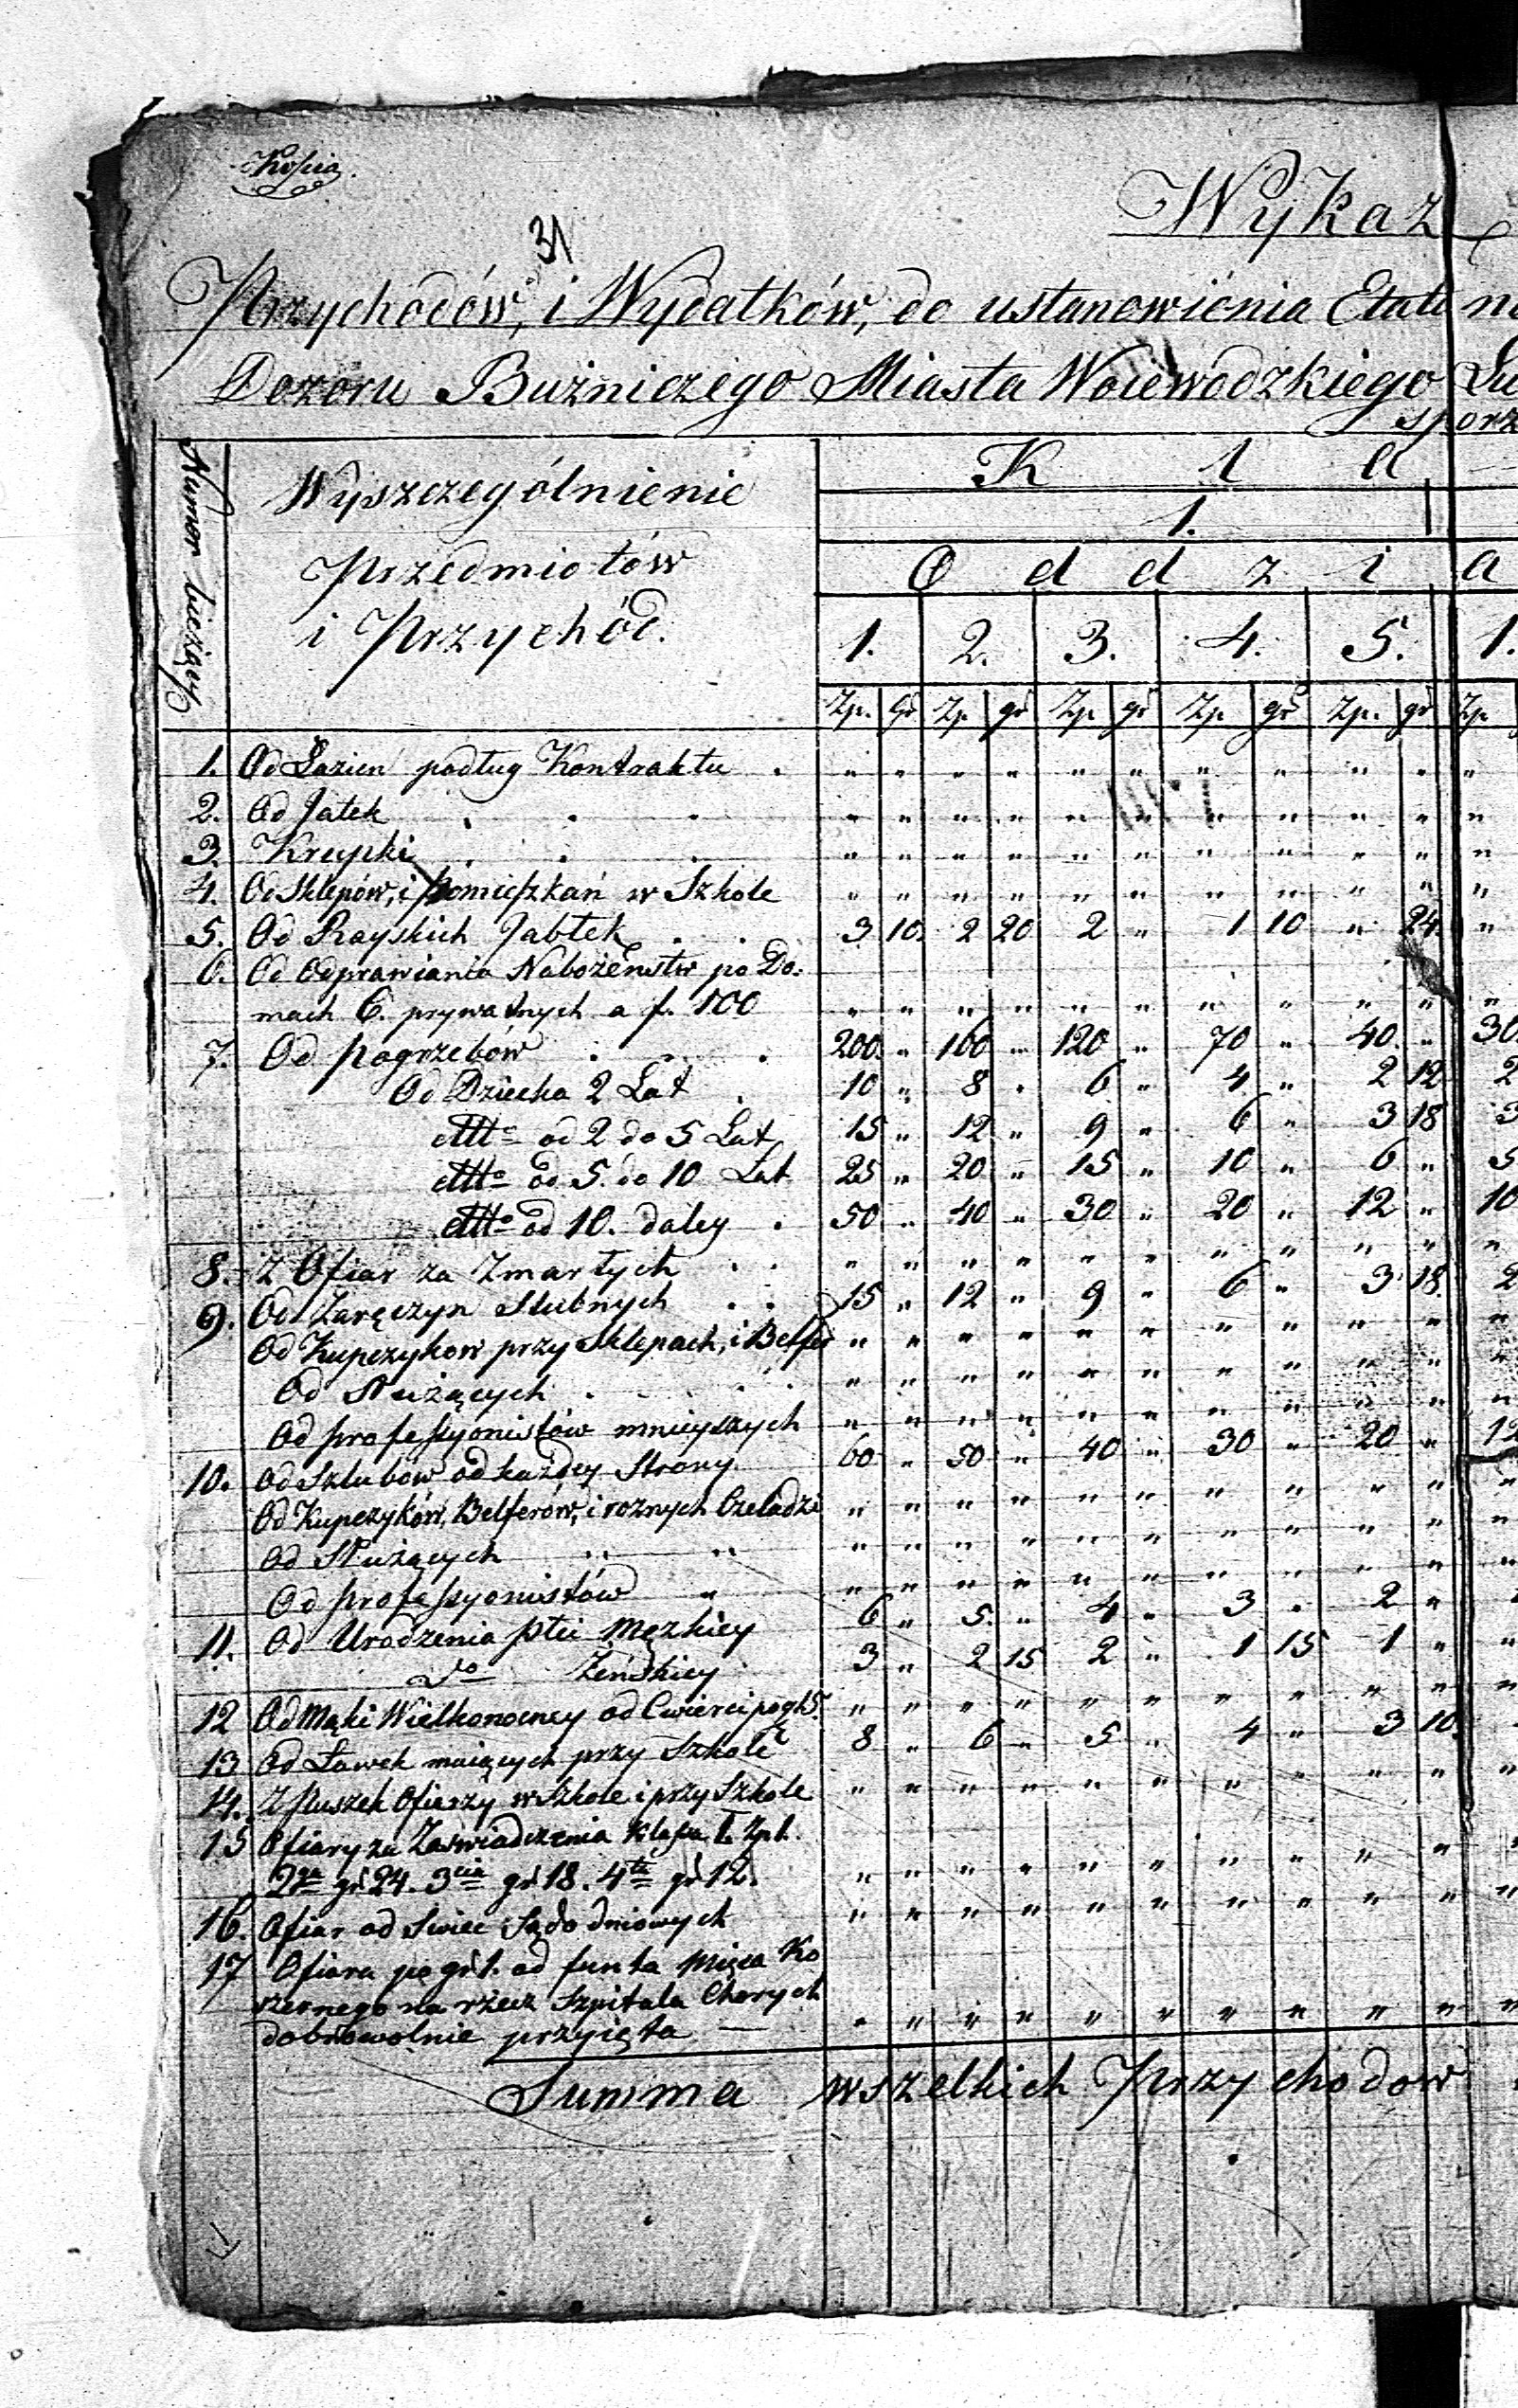 Kopia
31
Wykaz
Przychodów, i Wydatków, do ustanowienia Etatu
Dozoru Bużniczego Miasta Woiewodzkiego Lu
sporz
Numer bieżący
Wyszczególnienie
Przedmiotów
i Przychód.
K l a
1.
O d d z i a
1. 2. 3. 4. 5. 1.
Zp. Gr Zp gr Zp gr Zp gr Zp. gr Zp
1. Od Łazien podług Kontraktu . " " " " " " " " " " "
2. Od Jatek . . . " " " " " " " " " " "
3. Krupki . . . " " " " " " " " " " "
4. Od Sklepów, i pomieszkań w Szkole " " " " " " " " " " "
5. Od Rayskich Jabłek . . 3 10. 2 20 2 " 1 10 " 24. "
6. Od Odprawiania Nabożeństw po Do-
mach 6. prywatnych a f. 100 " " " " " " " " " " "
7. Od pogrzebów . . . 200. " 160 " 120 " 70 " 40. " 30.
Od Dziecka 2 Lat . 10 " 8 " 6 " 4 " 2 12 2
dtto od 2 do 5 Lat 15 " 12 " 9 " 6 " 3 18 3
dtto od 5. do 10 Lat 25 " 20 " 15 " 10 " 6 " 5
dtto od 10. daley . 50 " 40 " 30 " 20 " 12 " 10
8. Z Ofiar za Zmarłych . . " " " " " " " " " " "
9. Od Zaręczyn Slubnych . . 15 " 12 " 9 " 6 " 3 18. 2
Od Kupczykow przy Sklepach, i Belfer " " " " " " " " " " "
Od Służących . . . " " " " " " " " " " "
Od professyonistów mnieyszych " " " " " " " " " " "
10. Od Szlubow od każdey Strony 60 " 50 " 40 " 30 " 20 " 12
Od Kupczyków, Belferów, i roznych Czeladzi " " " " " " " " " " "
Od Służących " " " " " " " " " " "
Od professyonistów " " " " " " " " " " "
11. Od Urodzenia płci męzkiey 6 " 5. " 4 " 3 " 2 "
do Żeńskiey 3 " 2 15 2 " 1 15 1 " "
12 Od Mąki Wielkonocney od Cwierci po gr 15. " " " " " " " " " " "
13 Od Ławek maiących przy Szkole 8 " 6 " 5 " 4 " 3 10.
14. Z Puszek Ofierzy w Szkole i przy Szkole " " " " " " " " " " "
15 Ofiary za Zaświadczenia Klassa 1. Zp 1.
2ga gr 24. 3cia gr 18. 4ta gr 12. " " " " " " " " " " "
16. Ofiar od Swiec Sądo dniowych " " " " " " " " " " "
17 Ofiara po gr 1. od funta mięsa Ko
szernego na rzecz Szpitala Chorych
dobrowolnie przyięta " " " " " " " " " " "
Summa wszelkich Przychodow